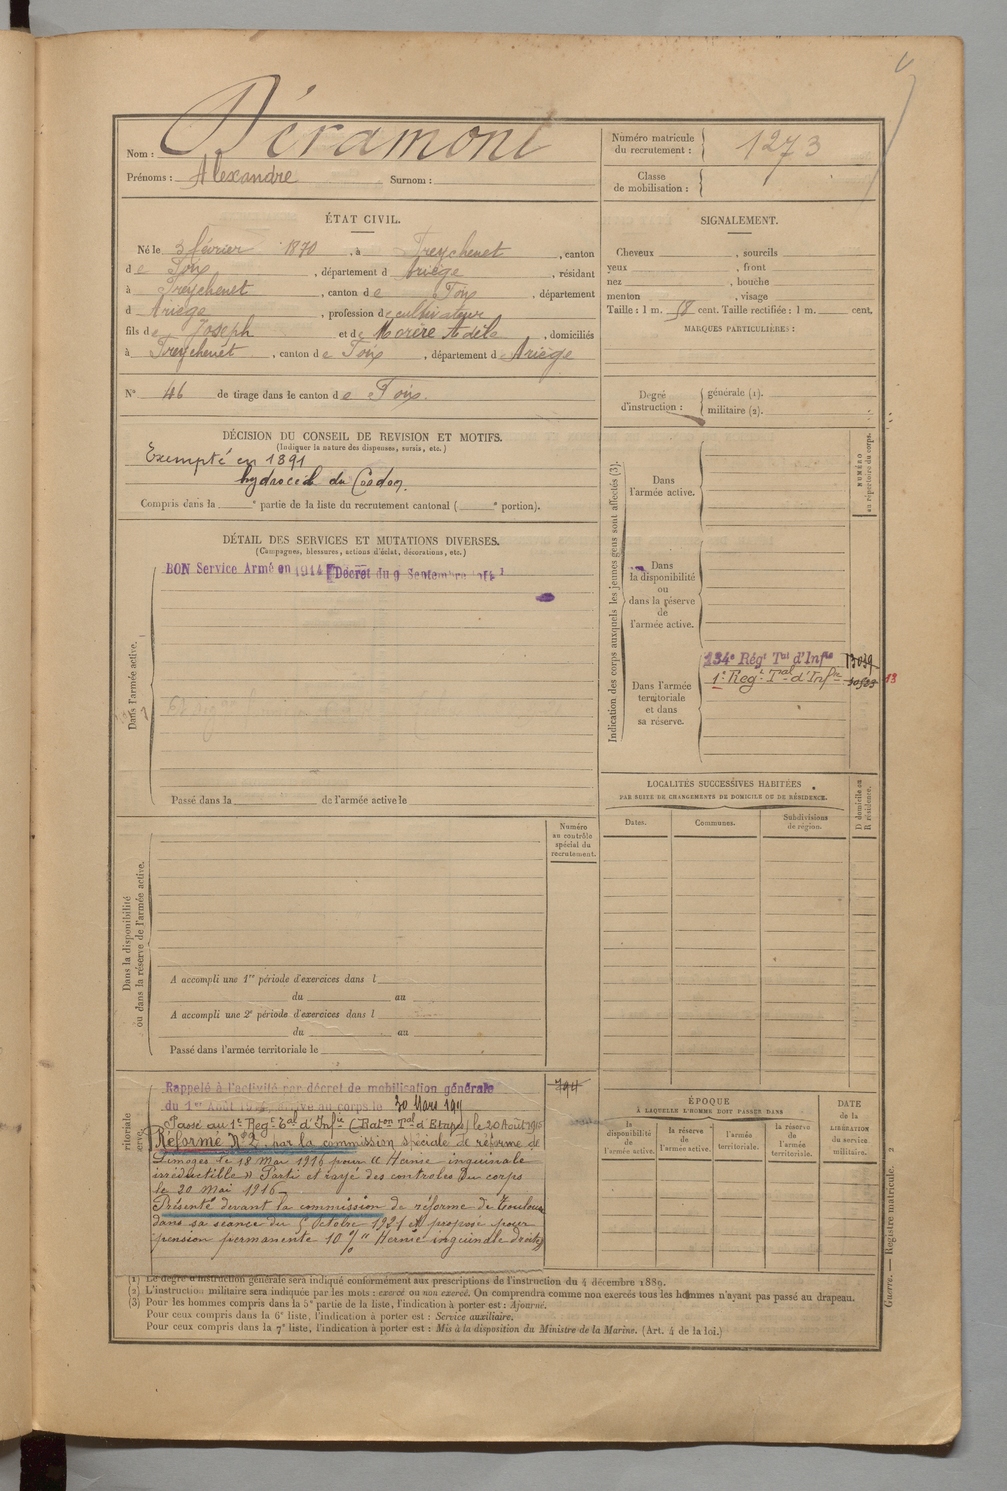 Nom : Déramont
Prénoms : Alexandre Surnom :
Numéro matricule du recrutement : 1273
Classe de mobilisation :
ÉTAT CIVIL.
Né le 3 février 1870, à Freychenet, canton
de Foix, département d Ariège, résidant
à Freychenet, canton de Foix, département
d Ariège, profession de cultivateur
fils de Joseph et de Morère Adèle, domiciliés
à Freychenet, canton de Foix, département d Ariège
N° 46 de tirage dans le canton de Foix.
SIGNALEMENT.
Cheveux , sourcils
yeux , front
nez , bouche
menton , visage
Taille : 1 m. cent. Taille rectifiée : 1 m. cent.
MARQUES PARTICULIÈRES :
Degré d'instruction : générale (1).
militaire (2).
DÉCISION DU CONSEIL DE REVISION ET MOTIFS.
(Indiquer la nature des dispenses, sursis, etc.)
Exempté en 1891
hydrocèle du Cordon.
Compris dans la e partie de la liste du recrutement cantonal ( e portion).
DÉTAIL DES SERVICES ET MUTATIONS DIVERSES.
(Campagnes, blessures, actions d'éclat, décorations, etc.)
BON Service Armé en 1914 Décret du 9 Septembre 1914
Dans l'armée active.
Passé dans la de l'armée active le
Indication des corps auxquels les jeunes gens sont affectés (3).
NUMÉRO au répertoire du corps.
Dans l'armée active.
Dans la disponibilité ou dans la réserve de l'armée active.
Dans l'armée territoriale et dans sa réserve.
134e Régt Tal d'Infie 13039
1er Régt Tal d'Infie
LOCALITÉS SUCCESSIVES HABITÉES
PAR SUITE DE CHANGEMENTS DE DOMICILE OU DE RÉSIDENCE.
Dates. Communes. Subdivisions de région. D domicile ou R résidence.
Numéro au contrôle spécial du recrutement.
Dans la disponibilité ou dans la réserve de l'armée active.
A accompli une 1re période d'exercices dans l
du au
A accompli une 2e période d'exercices dans l
du au
Passé dans l'armée territoriale le
794
Rappelé à l'activité par décret de mobilisation générale
du 1er Août 1914, arrivé au corps le 30 Mars 191
Passé au 1er Régt Tal d'Infie (Baton Tal d'Etapes) le 20 Août 1915
Réformé N°2 par la commission spéciale de réforme de
Limoges le 18 Mai 1916 pour "Hernie inguinale
irréductible" Parti et rayé des contrôles du corps
le 20 Mai 1916
Présenté devant la commission de réforme de Toulouse
dans sa séance du 5 Octobre 1921 et proposé pour
pension permanente 10 % "Hernie inguinale droite"
ÉPOQUE
À LAQUELLE L'HOMME DOIT PASSER DANS
la disponibilité de l'armée active.
la réserve de l'armée active.
l'armée territoriale.
la réserve de l'armée territoriale.
DATE de la LIBÉRATION du service militaire.
Guerre. — Registre matricule. 2
(1) Le degré d'instruction générale sera indiqué conformément aux prescriptions de l'instruction du 4 décembre 1889.
(2) L'instruction militaire sera indiquée par les mots : exercé ou non exercé. On comprendra comme non exercés tous les hommes n'ayant pas passé au drapeau.
(3) Pour les hommes compris dans la 5e partie de la liste, l'indication à porter est : Ajourné.
Pour ceux compris dans la 6e liste, l'indication à porter est : Service auxiliaire.
Pour ceux compris dans la 7e liste, l'indication à porter est : Mis à la disposition du Ministre de la Marine. (Art. 4 de la loi.)